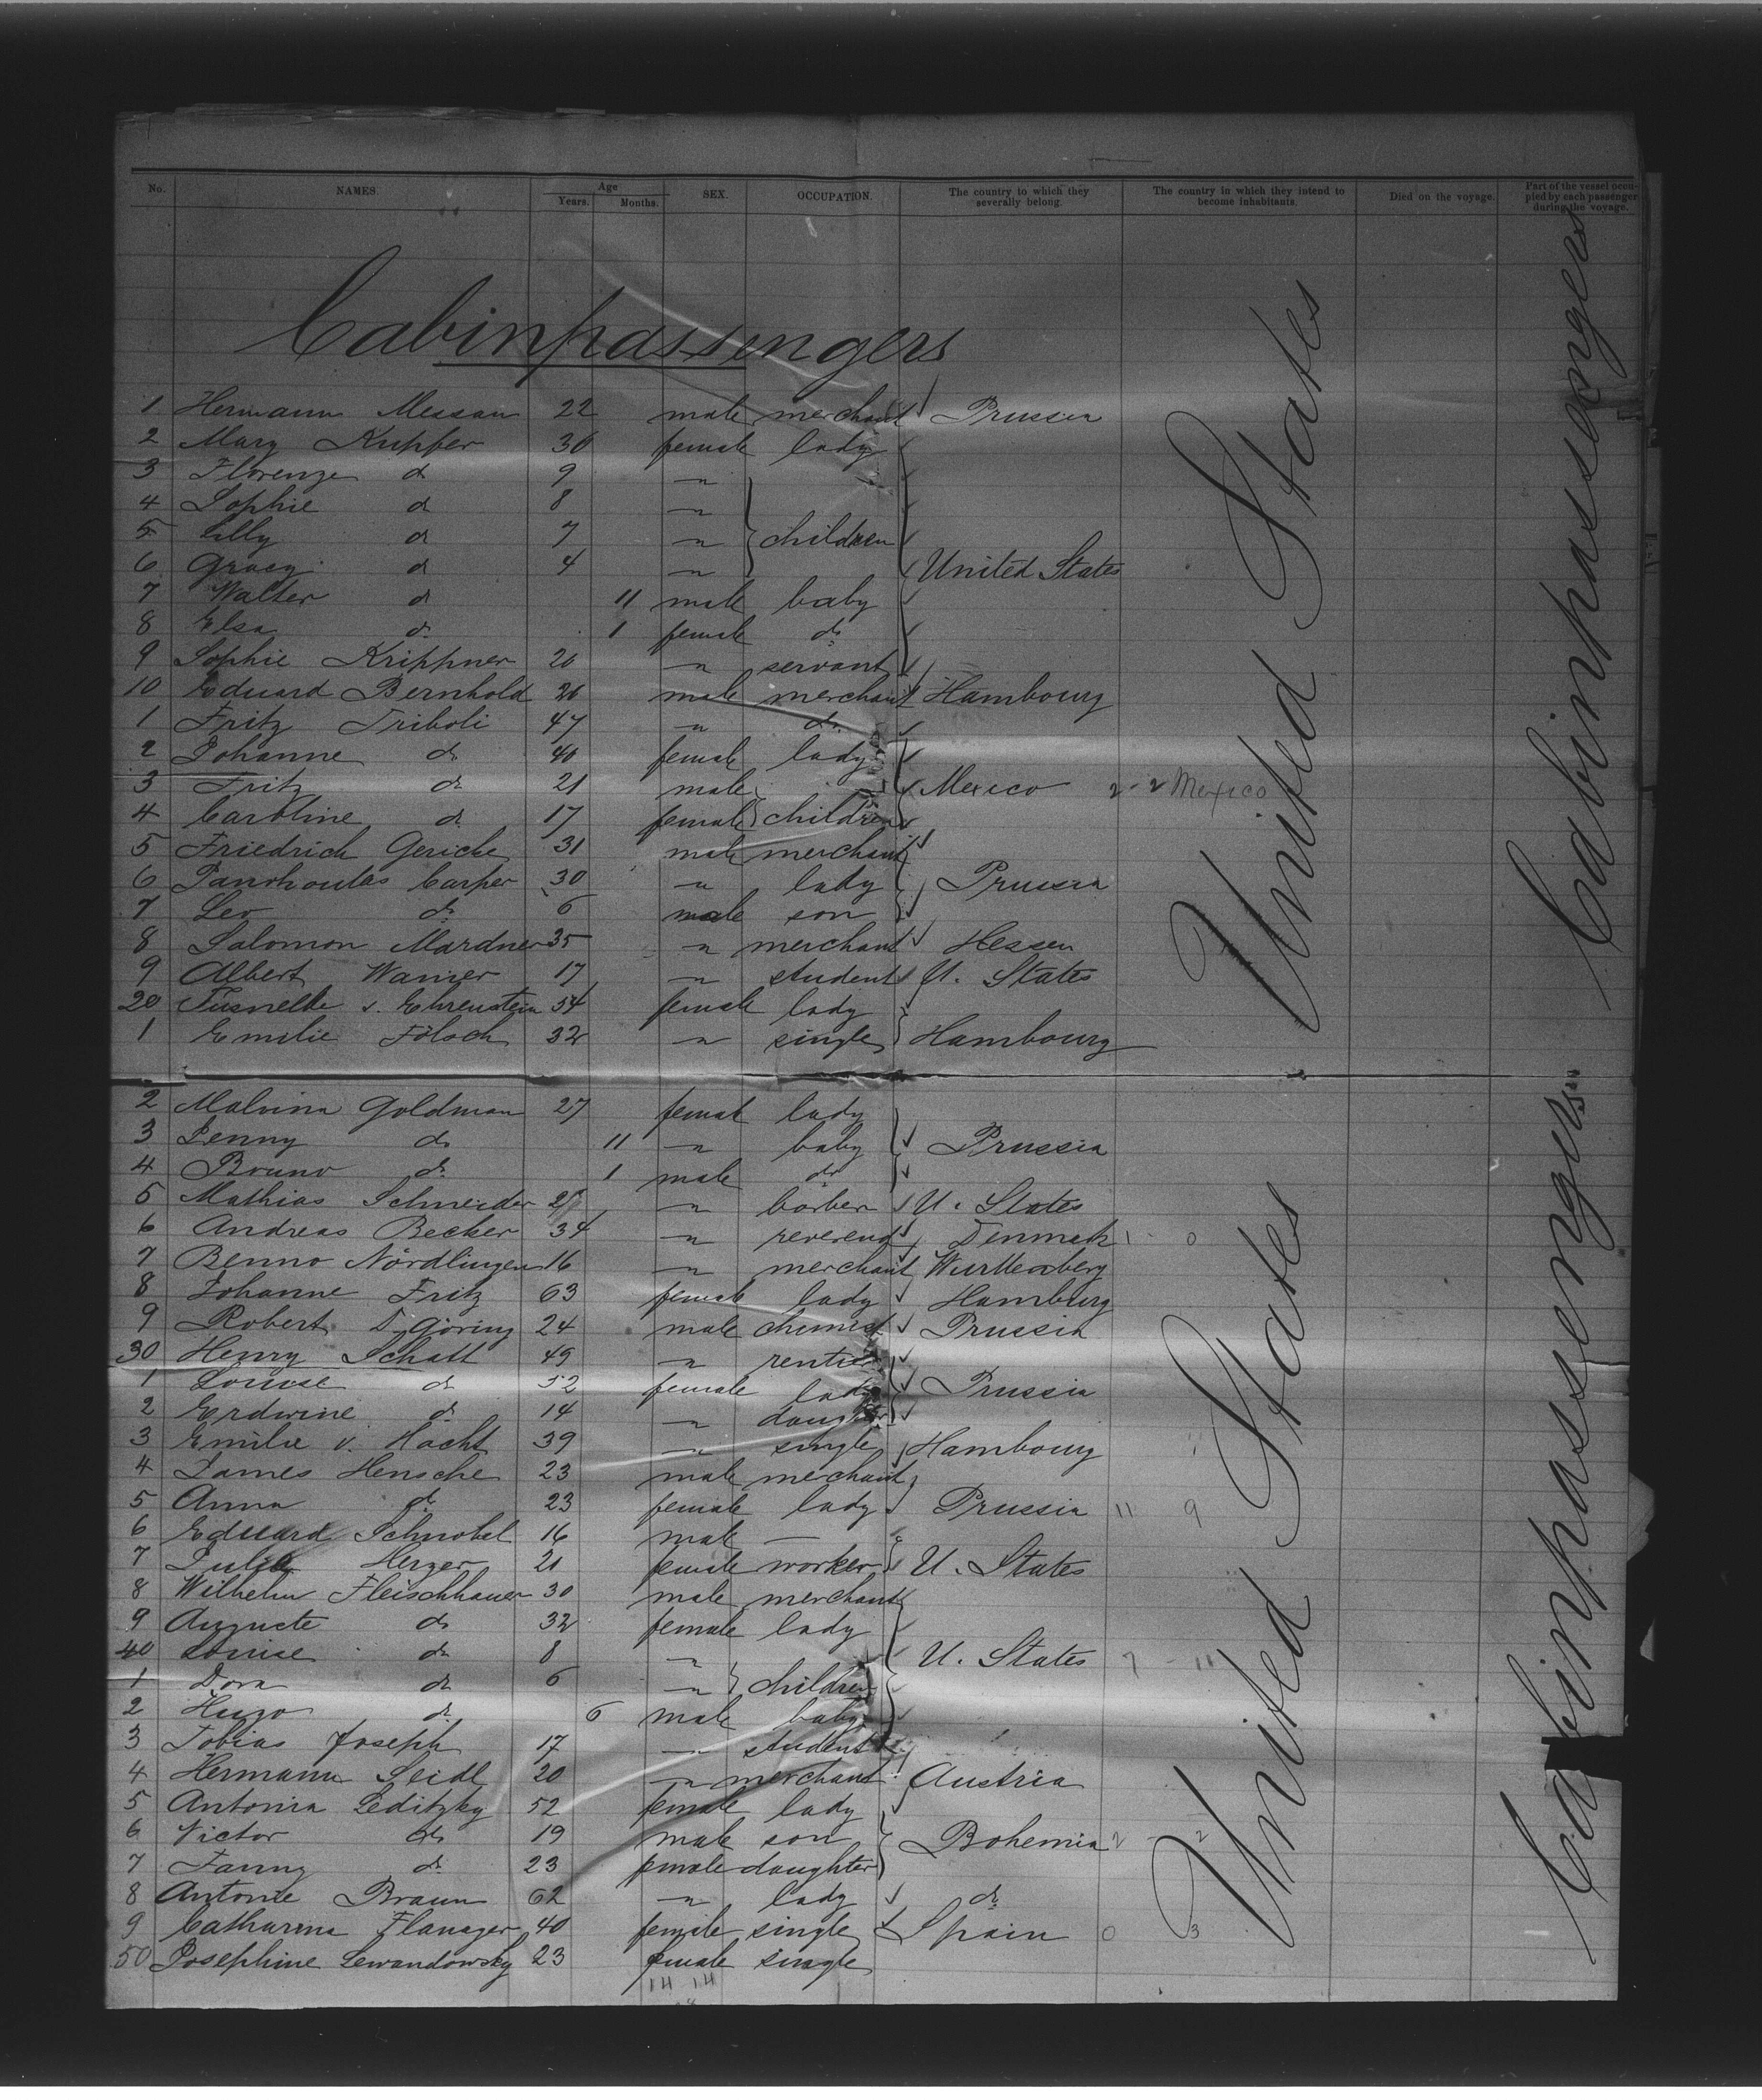 No. NAMES Age Years. Months. SEX. OCCUPATION. The country to which they severally belong. The country in which they intend to become inhabitants. Died on the voyage. Part of the vessel occupied by each passenger during the voyage.
Cabinpassengers
1 Hermann Messau 22 male merchant Prussia
2 Mary Kupfer 30 female lady
3 Florenze do 9 "
4 Sophie do 8 "
5 Lilly do 7 " children
6 Gracy do 4 " United States
7 Walter do 11 male baby
8 Elsa do 1 female do
9 Sophie Krippner 20 " servant
10 Eduard Bernhold 26 male merchant Hambourg
1 Fritz Triboli 47 " do
2 Johanne do 40 female lady
3 Fritz do 21 male Mexico 2 - 2 Mexico
4 Caroline do 17 female children
5 Friedrich Gericke 31 male merchant
6 Carper 30 " lady Prussia
7 Leo do 6 male son
8 Salomon Mardner 35 " merchant Hessen
9 Albert Warner 17 " student U. States
20 Tusnelle v. Ehrenstein 54 female lady
1 Emilie Fölsch 32 " single Hambourg
2 Malvina Goldman 27 female lady
3 Jenny do 11 " baby Prussia
4 Bruno do 1 male do
5 Mathias Schneider " barber U. States
6 Andreas Becker 34 " reverend Denmark 1 - 0
7 Benno Nördlingen 16 " merchant Wurttemberg
8 Johanne Fritz 63 female lady Hamburg
9 Robert D. Göring 24 male chemist Prussia
30 Henry Schatt 49 " rentier
1 Louise do 52 female lady Prussia
2 Erdwine do 14 " daughter
3 Emilie v. Hacht 39 " single Hambourg
4 James Hensche 23 male merchant
5 Anna do 23 female lady Prussia 11 9
6 Eduard Schnobel 16 male —
7 Julie Herzer 21 female worker U. States
8 Wilhelm Fleischhauer 30 male merchant
9 Auguste do 32 female lady
40 Louise do 8 " U. States 7 - 11
1 Dora do 6 " children
2 Hugo do 6 male baby
3 Tobias Joseph 17 " student
4 Hermann Seidl 20 " merchant Austria
5 Antonia Leditzky 52 female lady
6 Victor do 19 male son Bohemia 2 - 2
7 Fanny do 23 female daughter
8 Antonie Braun 62 " lady do
9 Catharina Flanager 40 female single Spain 0 3
50 Josephine Lewandowsky 23 female single
14 14
United States
United States
Cabinpassengers
Cabinpassengers